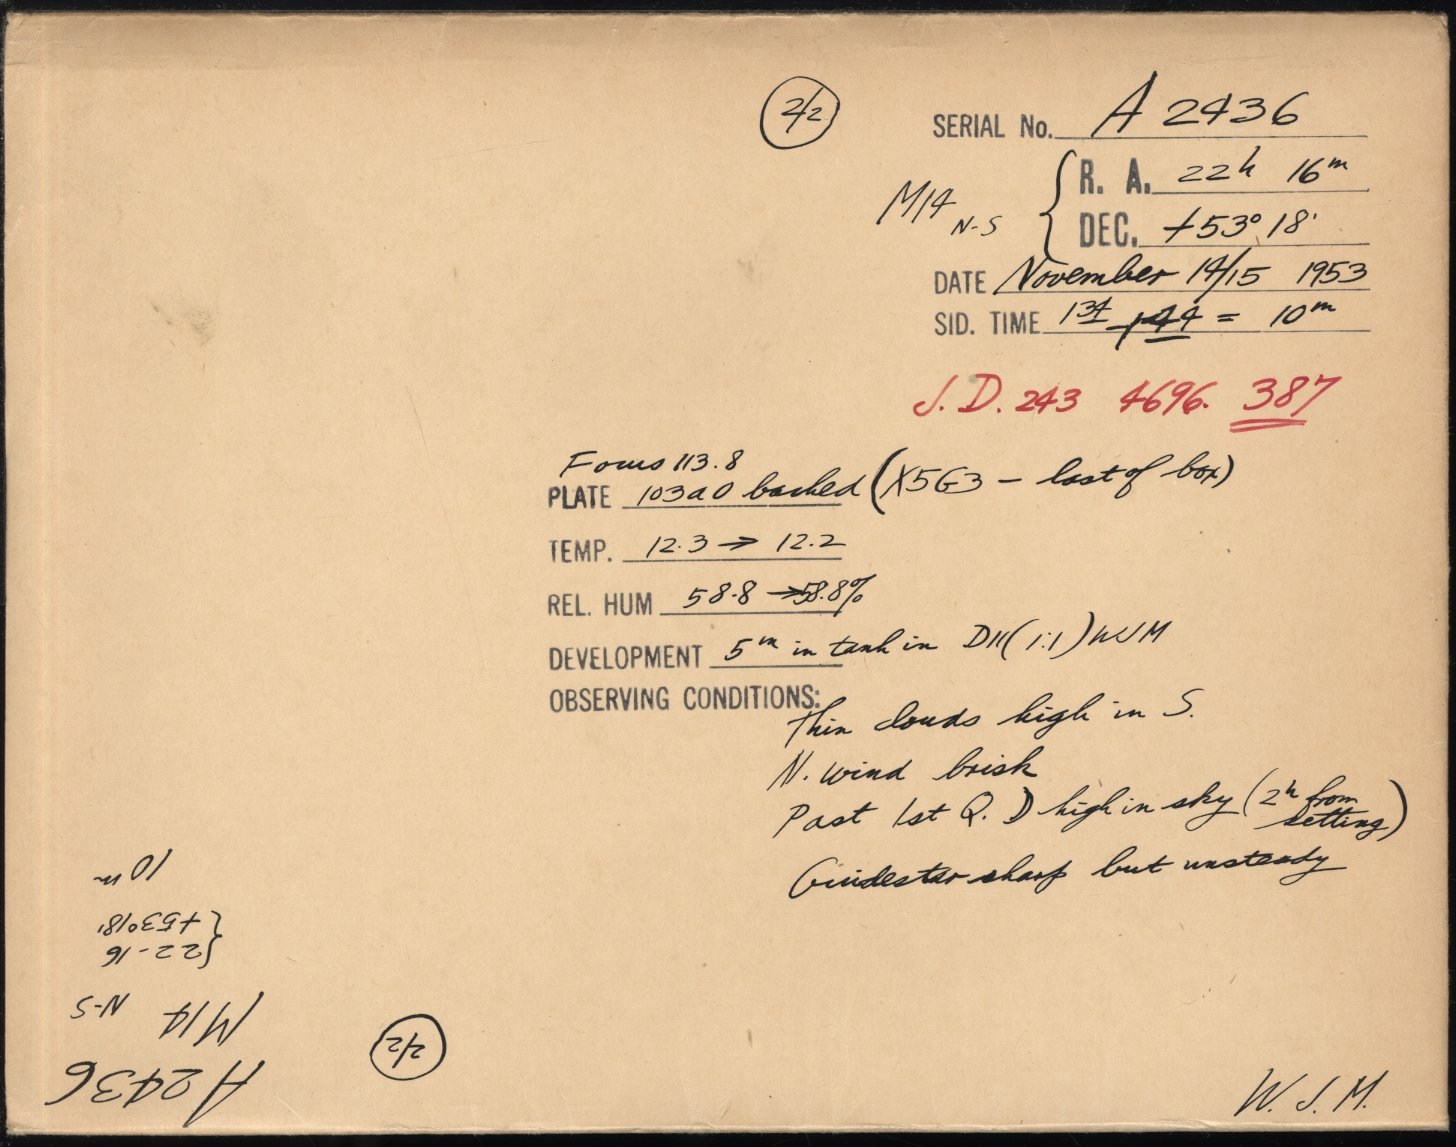 2/2
SERIAL No. A 2436
R. A. 22h 16m
M14 N-S
DEC. +53° 18'
DATE November 14/15 1953
SID. TIME 1 34 - 1 44 = 10m
J. D. 243 4696. 387
Focus 113.8
PLATE 103a0 backed (X5G3 — last of box)
TEMP. 12.3 → 12.2
REL. HUM 58.8 → 58.8%
DEVELOPMENT 5m in tank in D11 (1:1) WJM
OBSERVING CONDITIONS:
Thin clouds high in S.
N. wind brisk
Past 1st Q. D high in sky (2h from
setting)
Guidestar sharp but unsteady
W. J. M.
2/2
A 2436
M14 N-S
{22-16
{+53°18'
10m